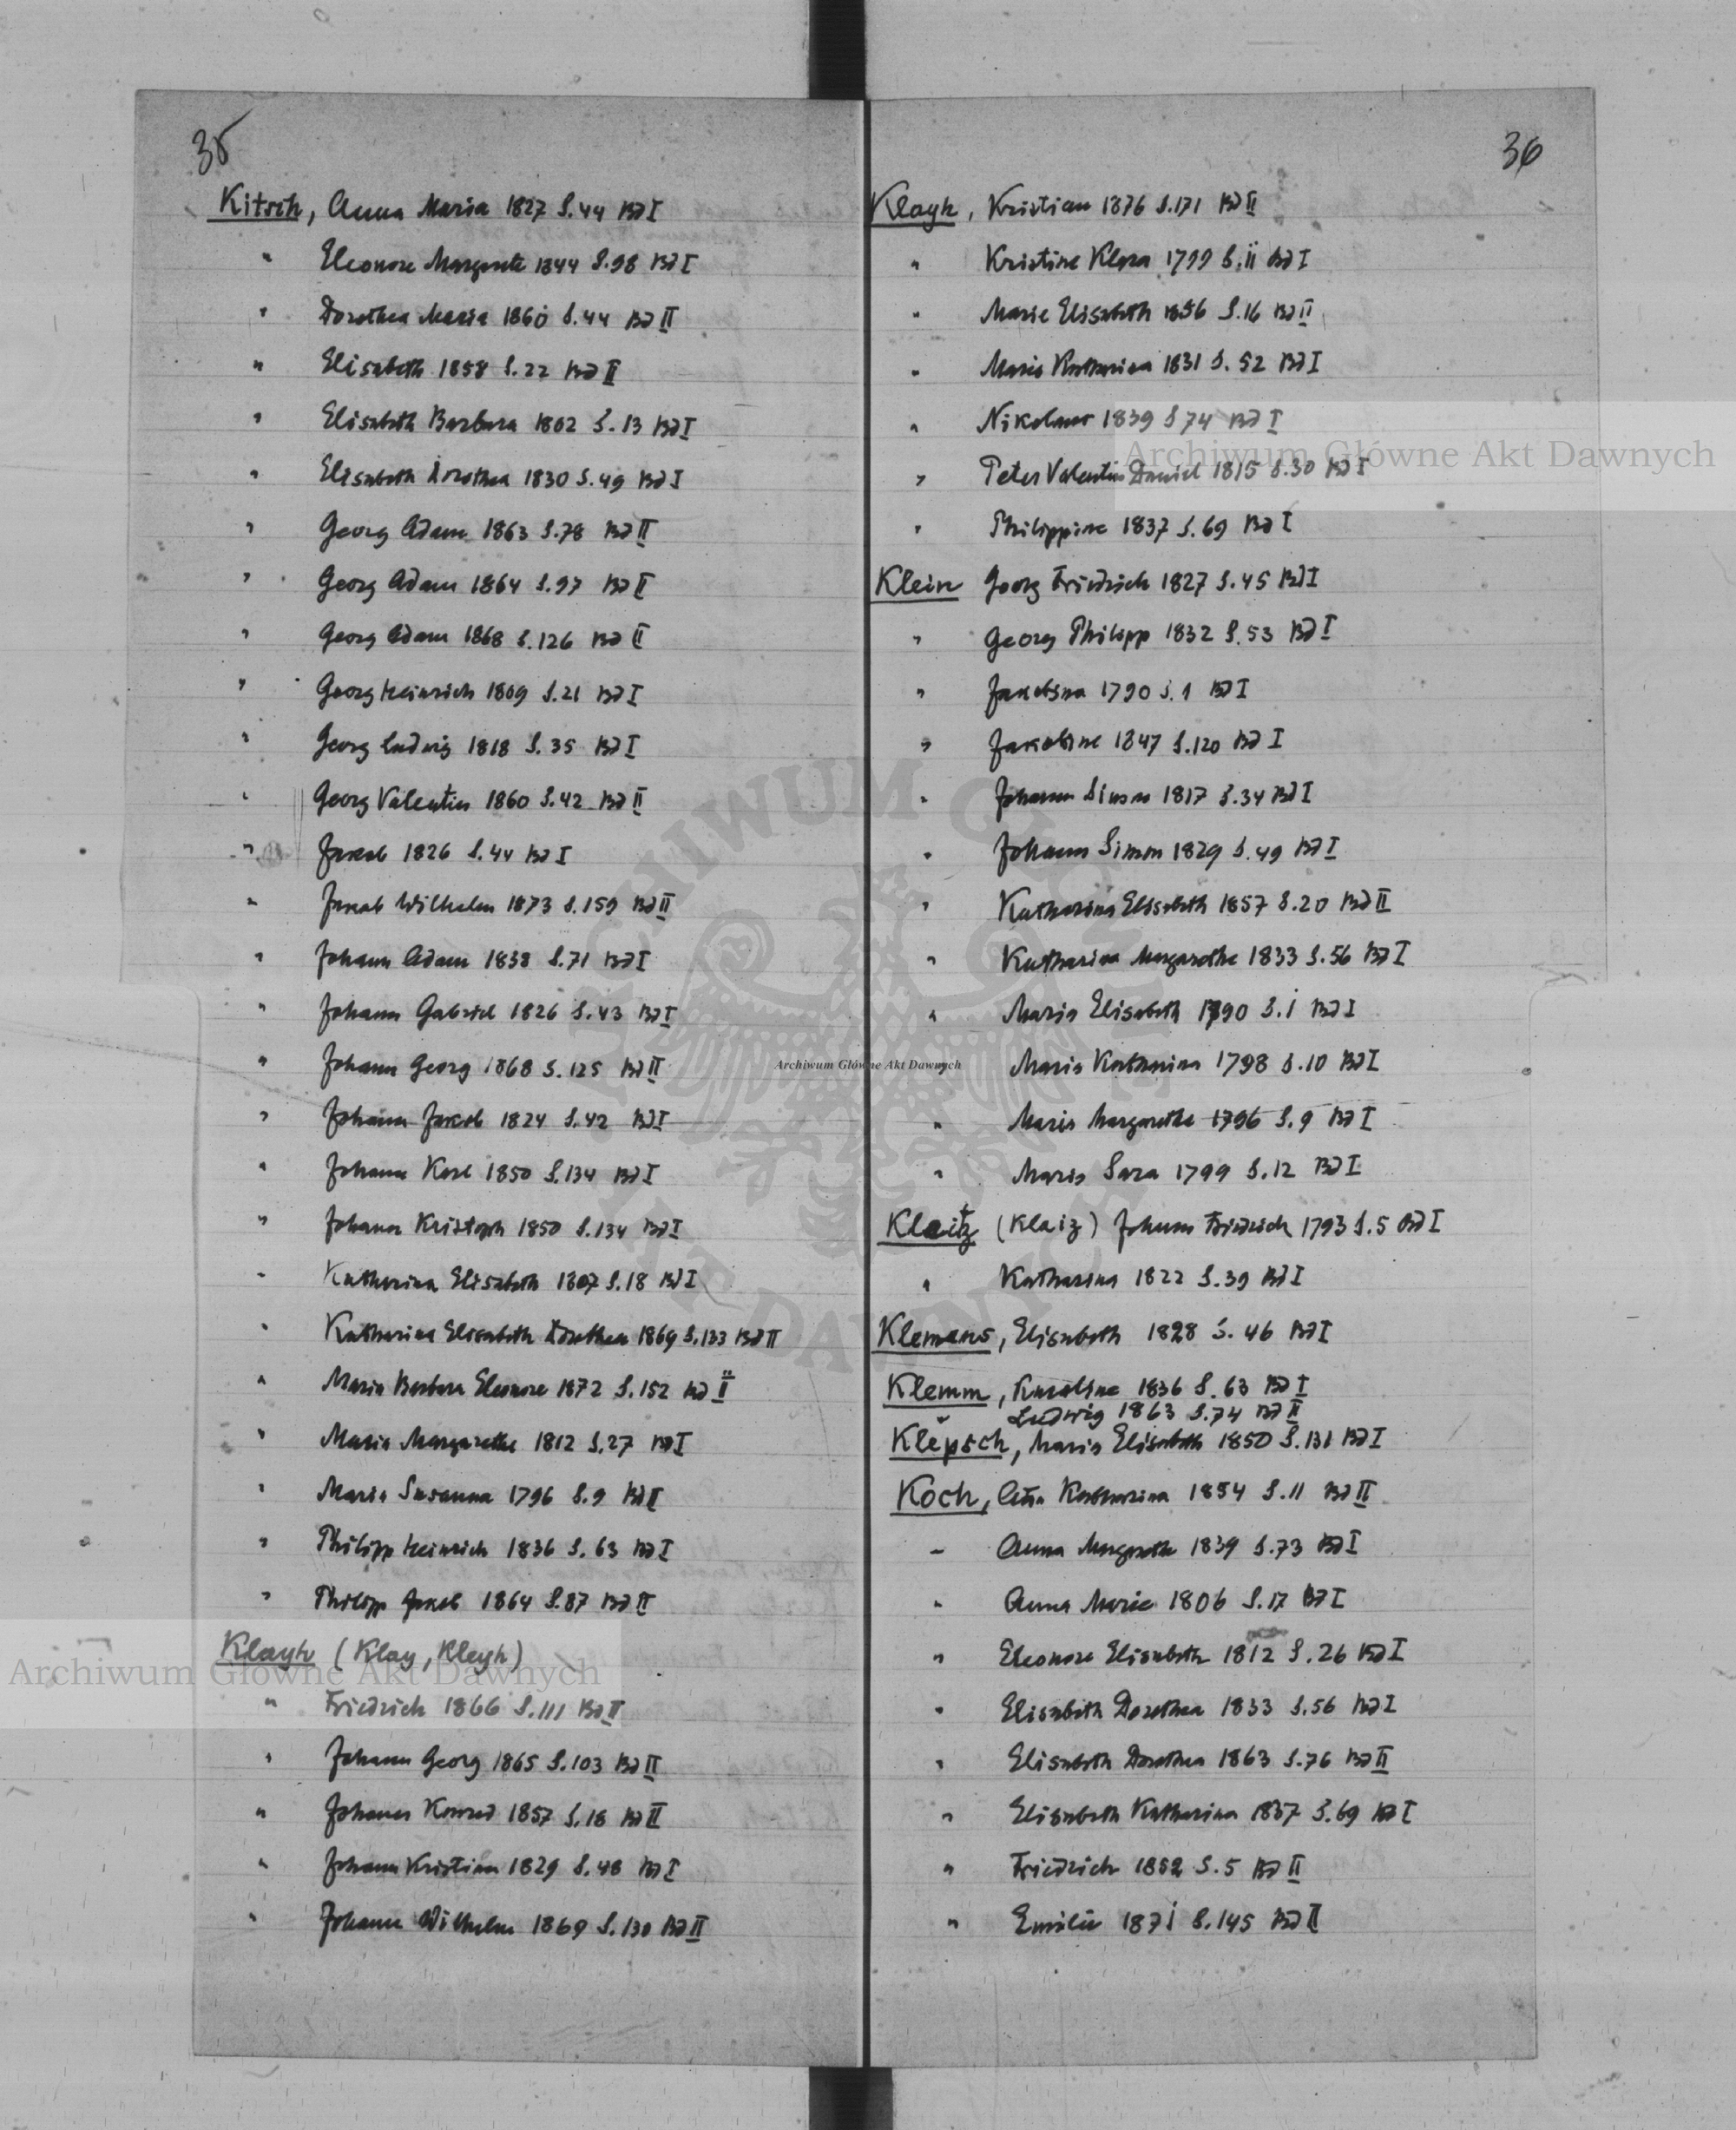 35
Kitsch, Anna Maria 1827 S.44 Bd I
" Eleonore Margarete 1844 S.98 Bd I
" Dorothea Maria 1860 S.44 Bd II
" Elisabeth 1858 S.22 Bd II
" Elisabeth Barbara 1802 S.13 Bd I
" Elisabeth Dorothea 1830 S.49 Bd I
" Georg Adam 1863 S.78 Bd II
" Georg Adam 1864 S.97 Bd II
" Georg Adam 1868 S.126 Bd II
" Georg Heinrich 1809 S.21 Bd I
" Georg Ludwig 1818 S.35 Bd I
" Georg Valentin 1860 S.42 Bd II
" Jakob 1826 S.44 Bd I
" Jakob Wilhelm 1873 S.159 Bd II
" Johann Adam 1838 S.71 Bd I
" Johann Gabriel 1826 S.43 Bd I
" Johann Georg 1868 S.125 Bd II
" Johann Jakob 1824 S.42 Bd I
" Johann Karl 1850 S.134 Bd I
" Johann Kristoph 1850 S.134 Bd I
" Katharina Elisabeth 1807 S.18 Bd I
" Katharina Elisabeth Dorothea 1869 S.133 Bd II
" Maria Barbara Eleonore 1872 S.152 Bd II
" Maria Margarethe 1812 S.27 Bd I
" Maria Susanna 1796 S.9 Bd I
" Philipp Heinrich 1836 S.63 Bd I
" Philipp Jakob 1864 S.87 Bd II
Klayh (Klay, Kleyh)
" Friedrich 1866 S.111 Bd II
" Johann Georg 1865 S.103 Bd II
" Johann Konrad 1857 S.18 Bd II
" Johann Kristian 1829 S.48 Bd I
" Johann Wilhelm 1869 S.130 Bd II
36
Klayh, Kristian 1876 S.171 Bd II
" Kristine Klara 1799 S.11 Bd I
" Marie Elisabeth 1856 S.16 Bd II
" Maria Katharina 1831 S.52 Bd I
" Nikolaus 1839 S 74 Bd I
" Peter Valentin Daniel 1815 S.30 Bd I
" Philippine 1837 S.69 Bd I
Klein Georg Friedrich 1827 S.45 Bd I
" Georg Philipp 1832 S.53 Bd I
" Jakobina 1790 S.1 Bd I
" Jakobine 1847 S.120 Bd I
" Johann Simon 1817 S.34 Bd I
" Johann Simon 1829 S.49 Bd I
" Katharina Elisabeth 1857 S.20 Bd II
" Katharina Margarethe 1833 S.56 Bd I
" Maria Elisabeth 1790 S.1 Bd I
" Maria Katharina 1798 S.10 Bd I
" Maria Margarethe 1796 S.9 Bd I
" Maria Sara 1799 S.12 Bd I
Kleitz (Klaiz) Johann Friedrich 1793 S.5 Bd I
" Katharina 1822 S.39 Bd I
Klemens, Elisabeth 1828 S.46 Bd I
Klemm, Karoline 1836 S.63 Bd I
Ludwig 1863 S.74 Bd II
Klepsch, Maria Elisabeth 1850 S.131 Bd I
Koch, Anna Katharina 1854 S.11 Bd II
" Anna Margareth 1839 S.73 Bd I
" Anna Marie 1806 S.17 Bd I
" Eleonore Elisabeth 1812 S.26 Bd I
" Elisabeth Dorothea 1833 S.56 Bd I
" Elisabeth Dorothea 1863 S.76 Bd II
" Elisabeth Katharina 1837 S.69 Bd I
" Friedrich 1852 S.5 Bd II
" Emilie 1871 S.145 Bd II
Archiwum Główne Akt Dawnych
Archiwum Główne Akt Dawnych
Archiwum Główne Akt Dawnych